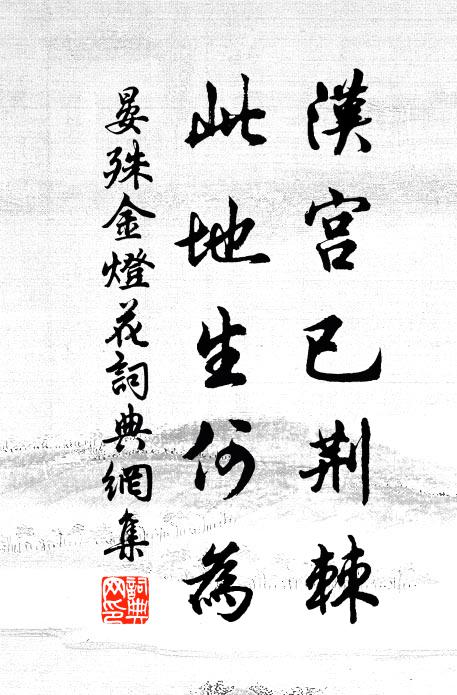 漢宮已荆棘
此地生何為
晏殊金燈花詞典網集
詞典網印